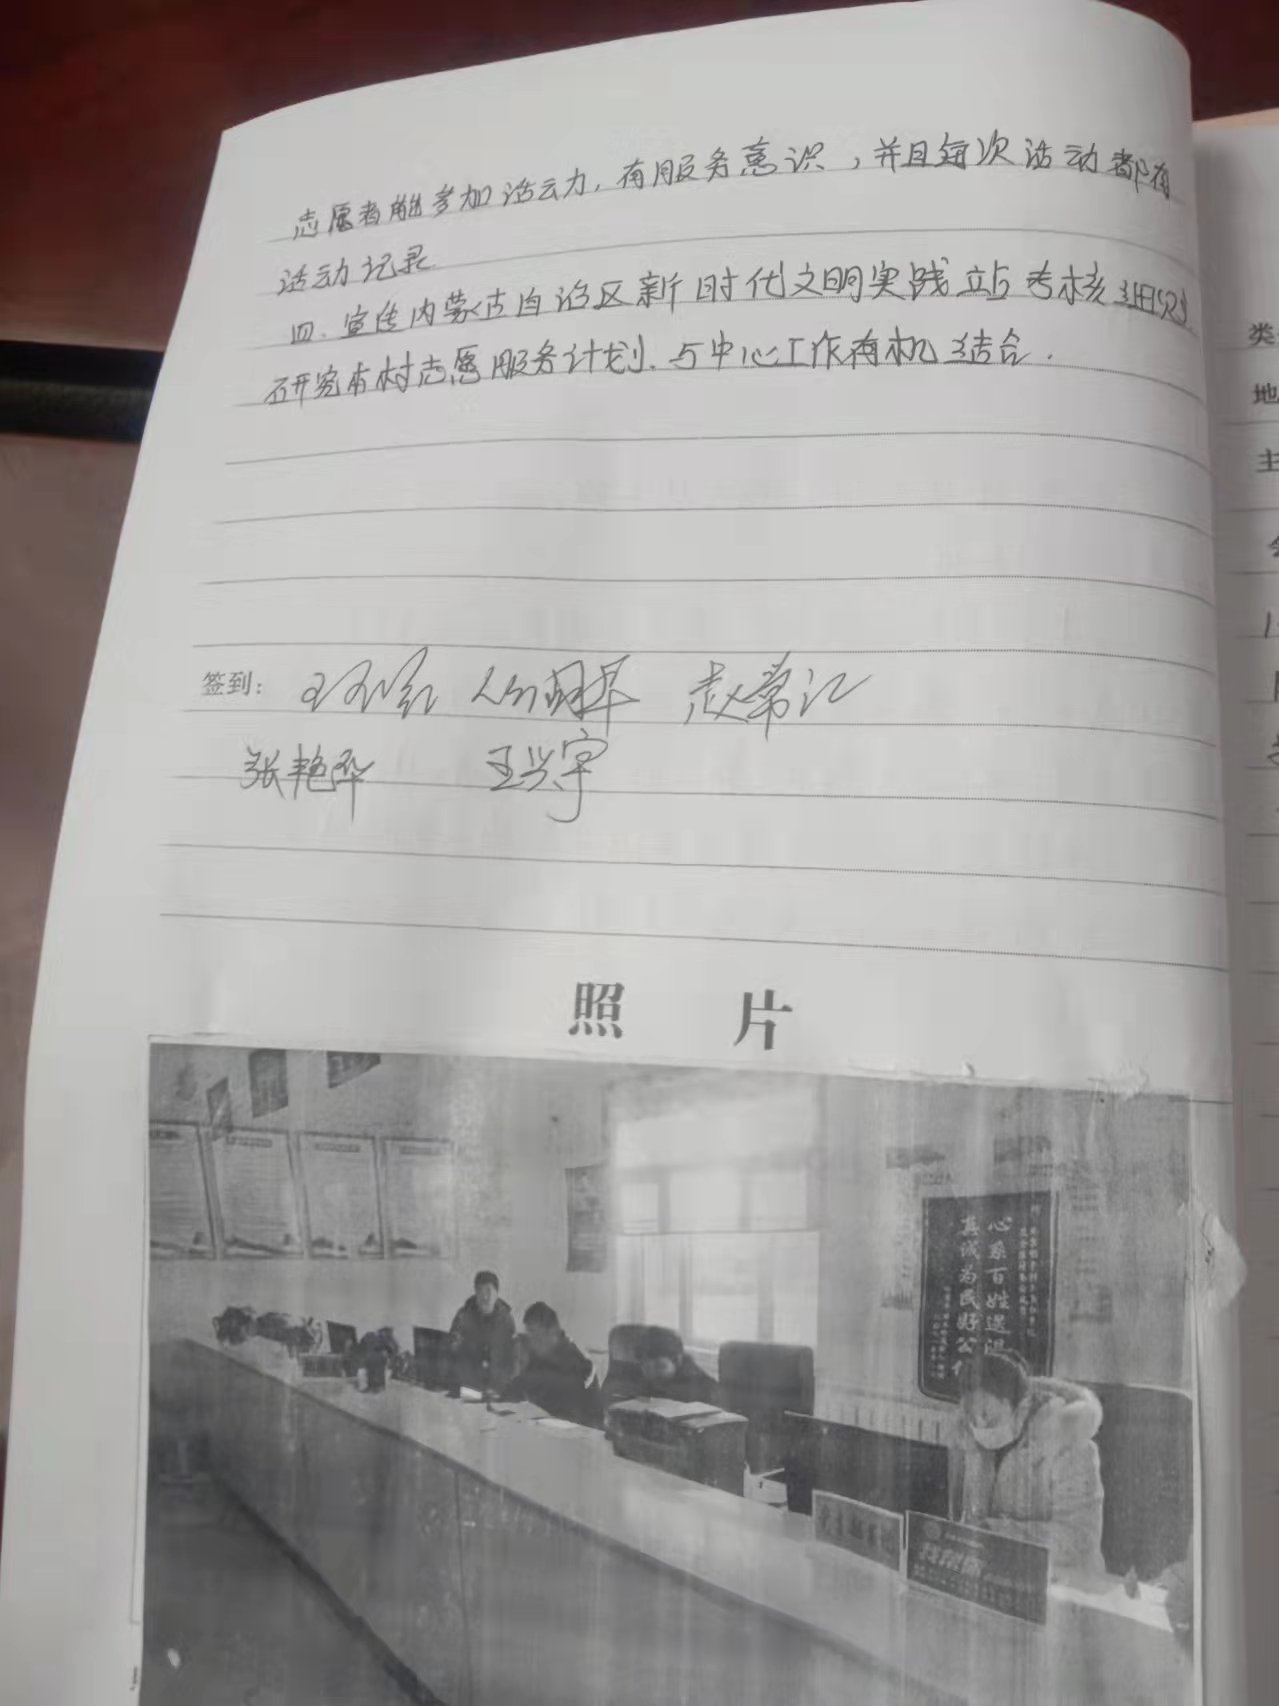 志愿者能参加活动，有服务意识，并且每次活动都有
活动记录
四、宣传内蒙古自治区新时代文明实践站考核细则，
研究本村志愿服务计划，与中心工作有机结合．
签到： 赵常江
张艳华 王兴宇
照 片
心系百姓遇
真诚为民好公
类
地
主